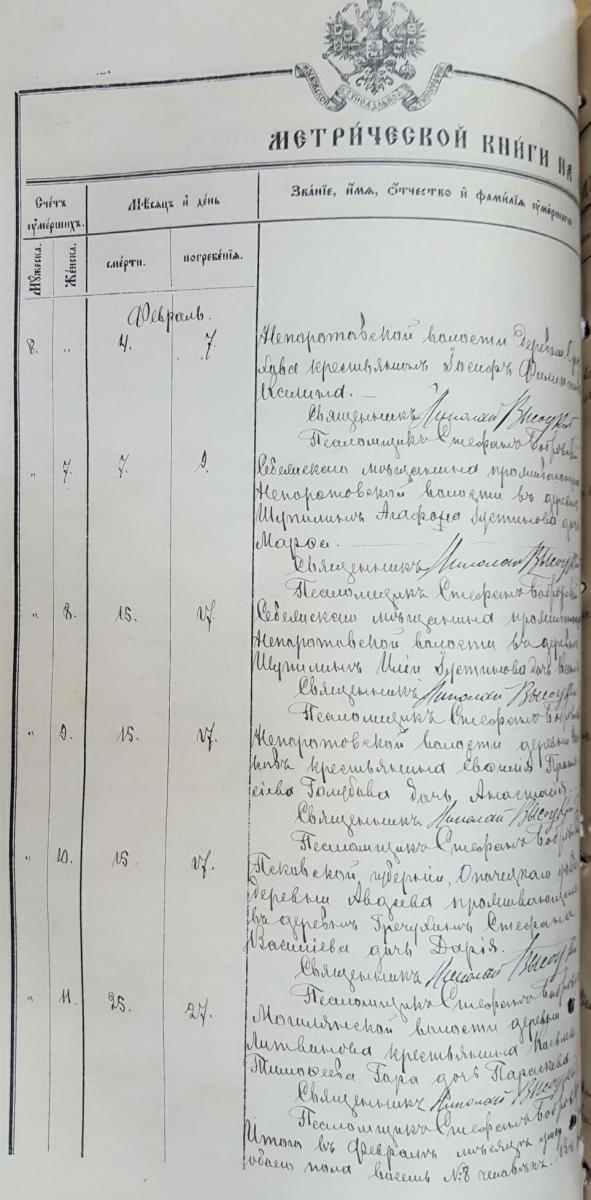 МОСКОВСКОЙ СѴНОДАЛЬНОЙ ТИПОГРАФІИ
МЕТРИ́ЧЕСКОЙ КНИ́ГИ НА
Сче́тъ ѹме́ршихъ.
Мѣ́сяцъ и де́нь
Зва́нїе, и́мя, ѻ́тчество и фами́лїя ѹме́ршаго
Мѹжеска.
Же́нска.
сме́рти.
погребе́нїя.
Февраль.
8. „ 4. 7. Непоротовской волости деревни
крестьянинъ Іосифъ
Калина. —
Священникъ Николай Высоцкій
Псаломщикъ Стефанъ Бобровскій
„ 7. 7. 9. Себежскаго мѣщанина проживающаго
Непоротовской волости въ деревнѣ
Шупилинѣ Агафона Іустинова дочь
Марѳа. —
Священникъ Николай Высоцкій
Псаломщикъ Стефанъ Бобровскій
„ 8. 15. 17. Себежскаго мѣщанина проживающ
Непоротовской волости въ деревнѣ
Шупилинѣ Иліи Іустинова дочь
Священникъ Николай Высоцкій
Псаломщикъ Стефанъ Бобровскій
„ 9. 15. 17. Непоротовской волости деревни
крестьянина
Голубова дочь Анастасія.
Священникъ Николай Высоцкій
Псаломщикъ Стефанъ Бобровскій
„ 10. 15. 17. Псковской губерніи, Опочецкаго уѣзда
деревни Авдѣева проживающаго
въ деревнѣ Гречухинѣ Стефана
Василіева дочь Дарія.
Священникъ Николай Высоцкій
Псаломщикъ Стефанъ Бобровс
„ 11. 25. 27. Могилянской волости деревни
Литвинова крестьянина
Тимоѳеева Гара дочь Параскева
Священникъ Николай Высоцкій
Псаломщикъ Стефанъ Бобров
Итого въ Февралѣ мѣсяцѣ
обоего пола восемь №8 человѣкъ.